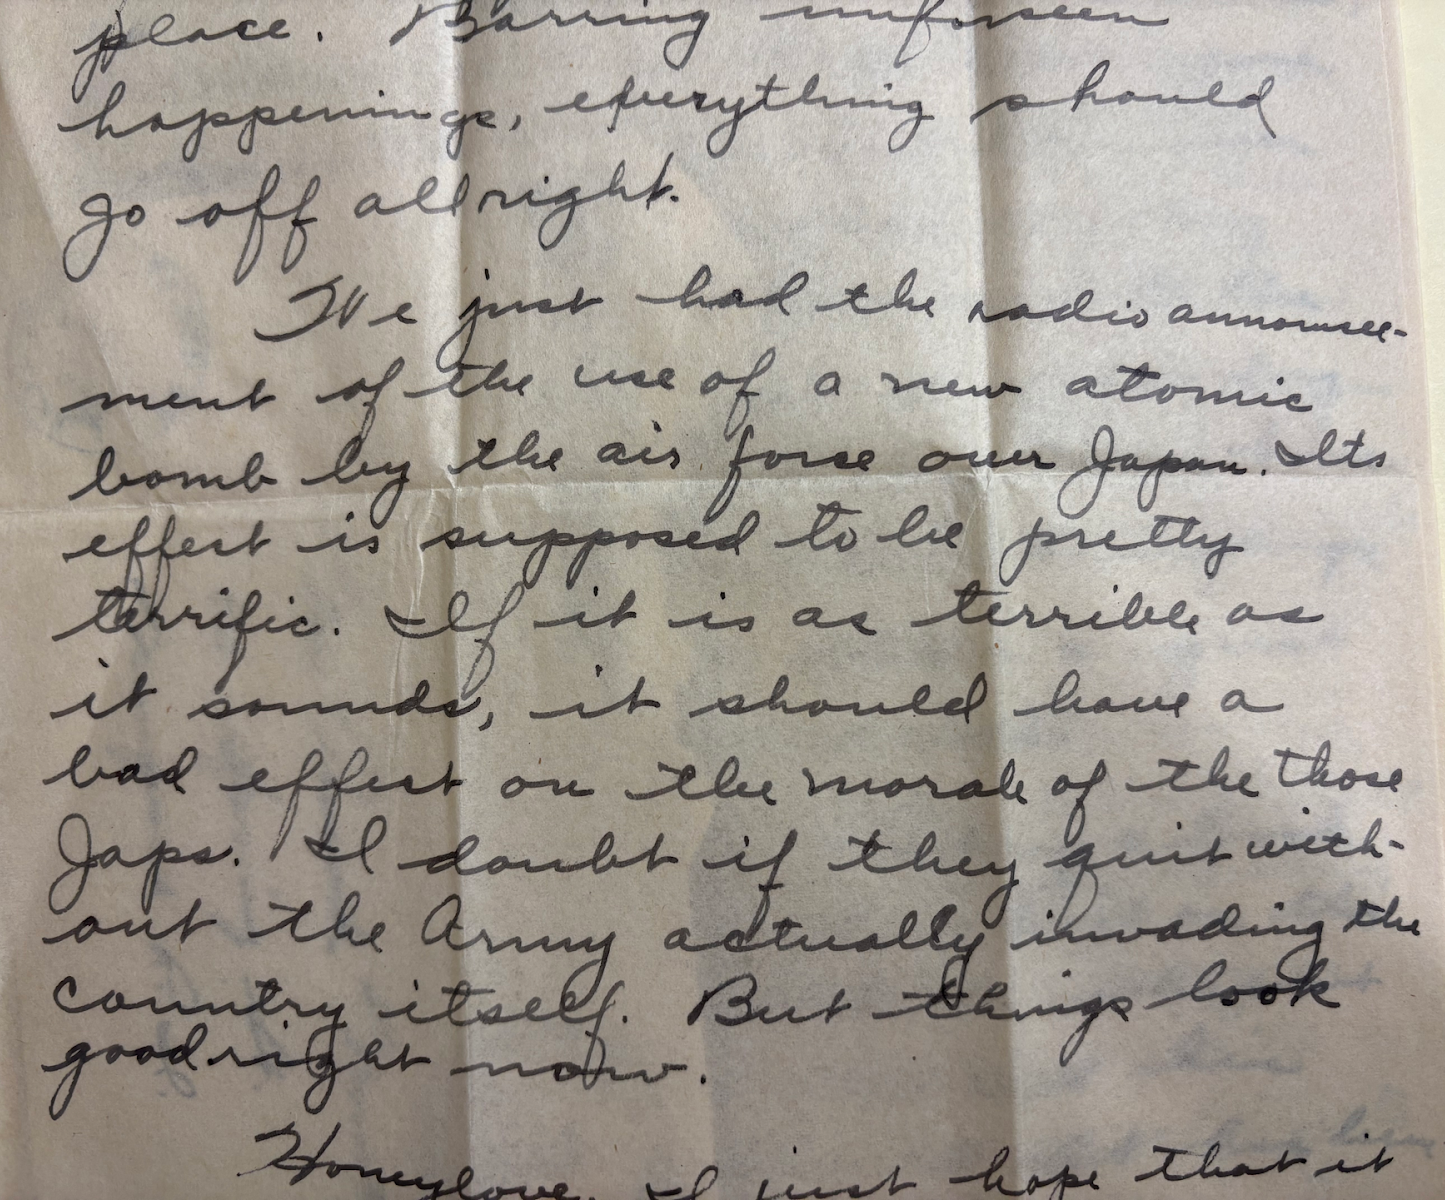 place. Barring unforseen
happenings, everything should
go off allright.
We just had the radio announce-
ment of the use of a new atomic
bomb by the air force over Japan. Its
effect is supposed to be pretty
terrific. If it is as terrible as
it sounds, it should have a
bad effect on the morale of the those
Japs. I doubt if they quit with-
out the Army actually invading the
country itself. But things look
good right now.
Honeylove, I just hope that it